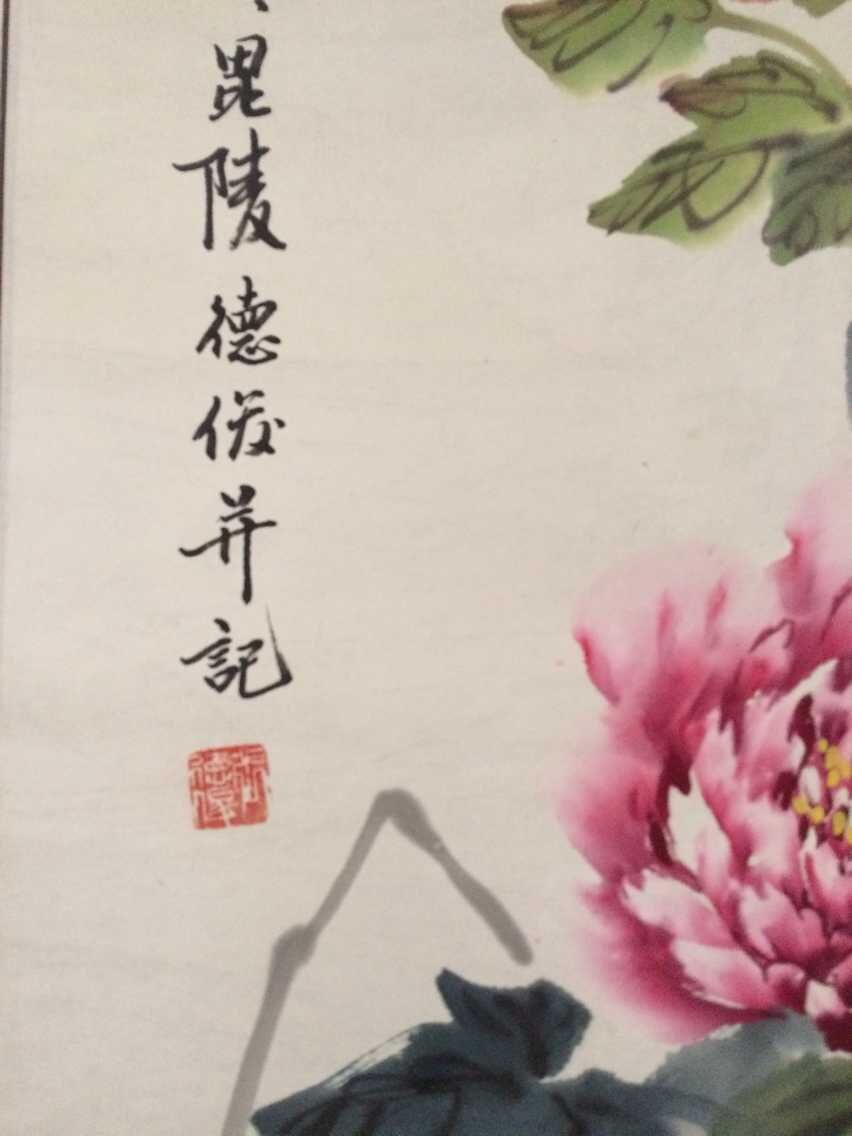 毘陵德俊并記
張德俊